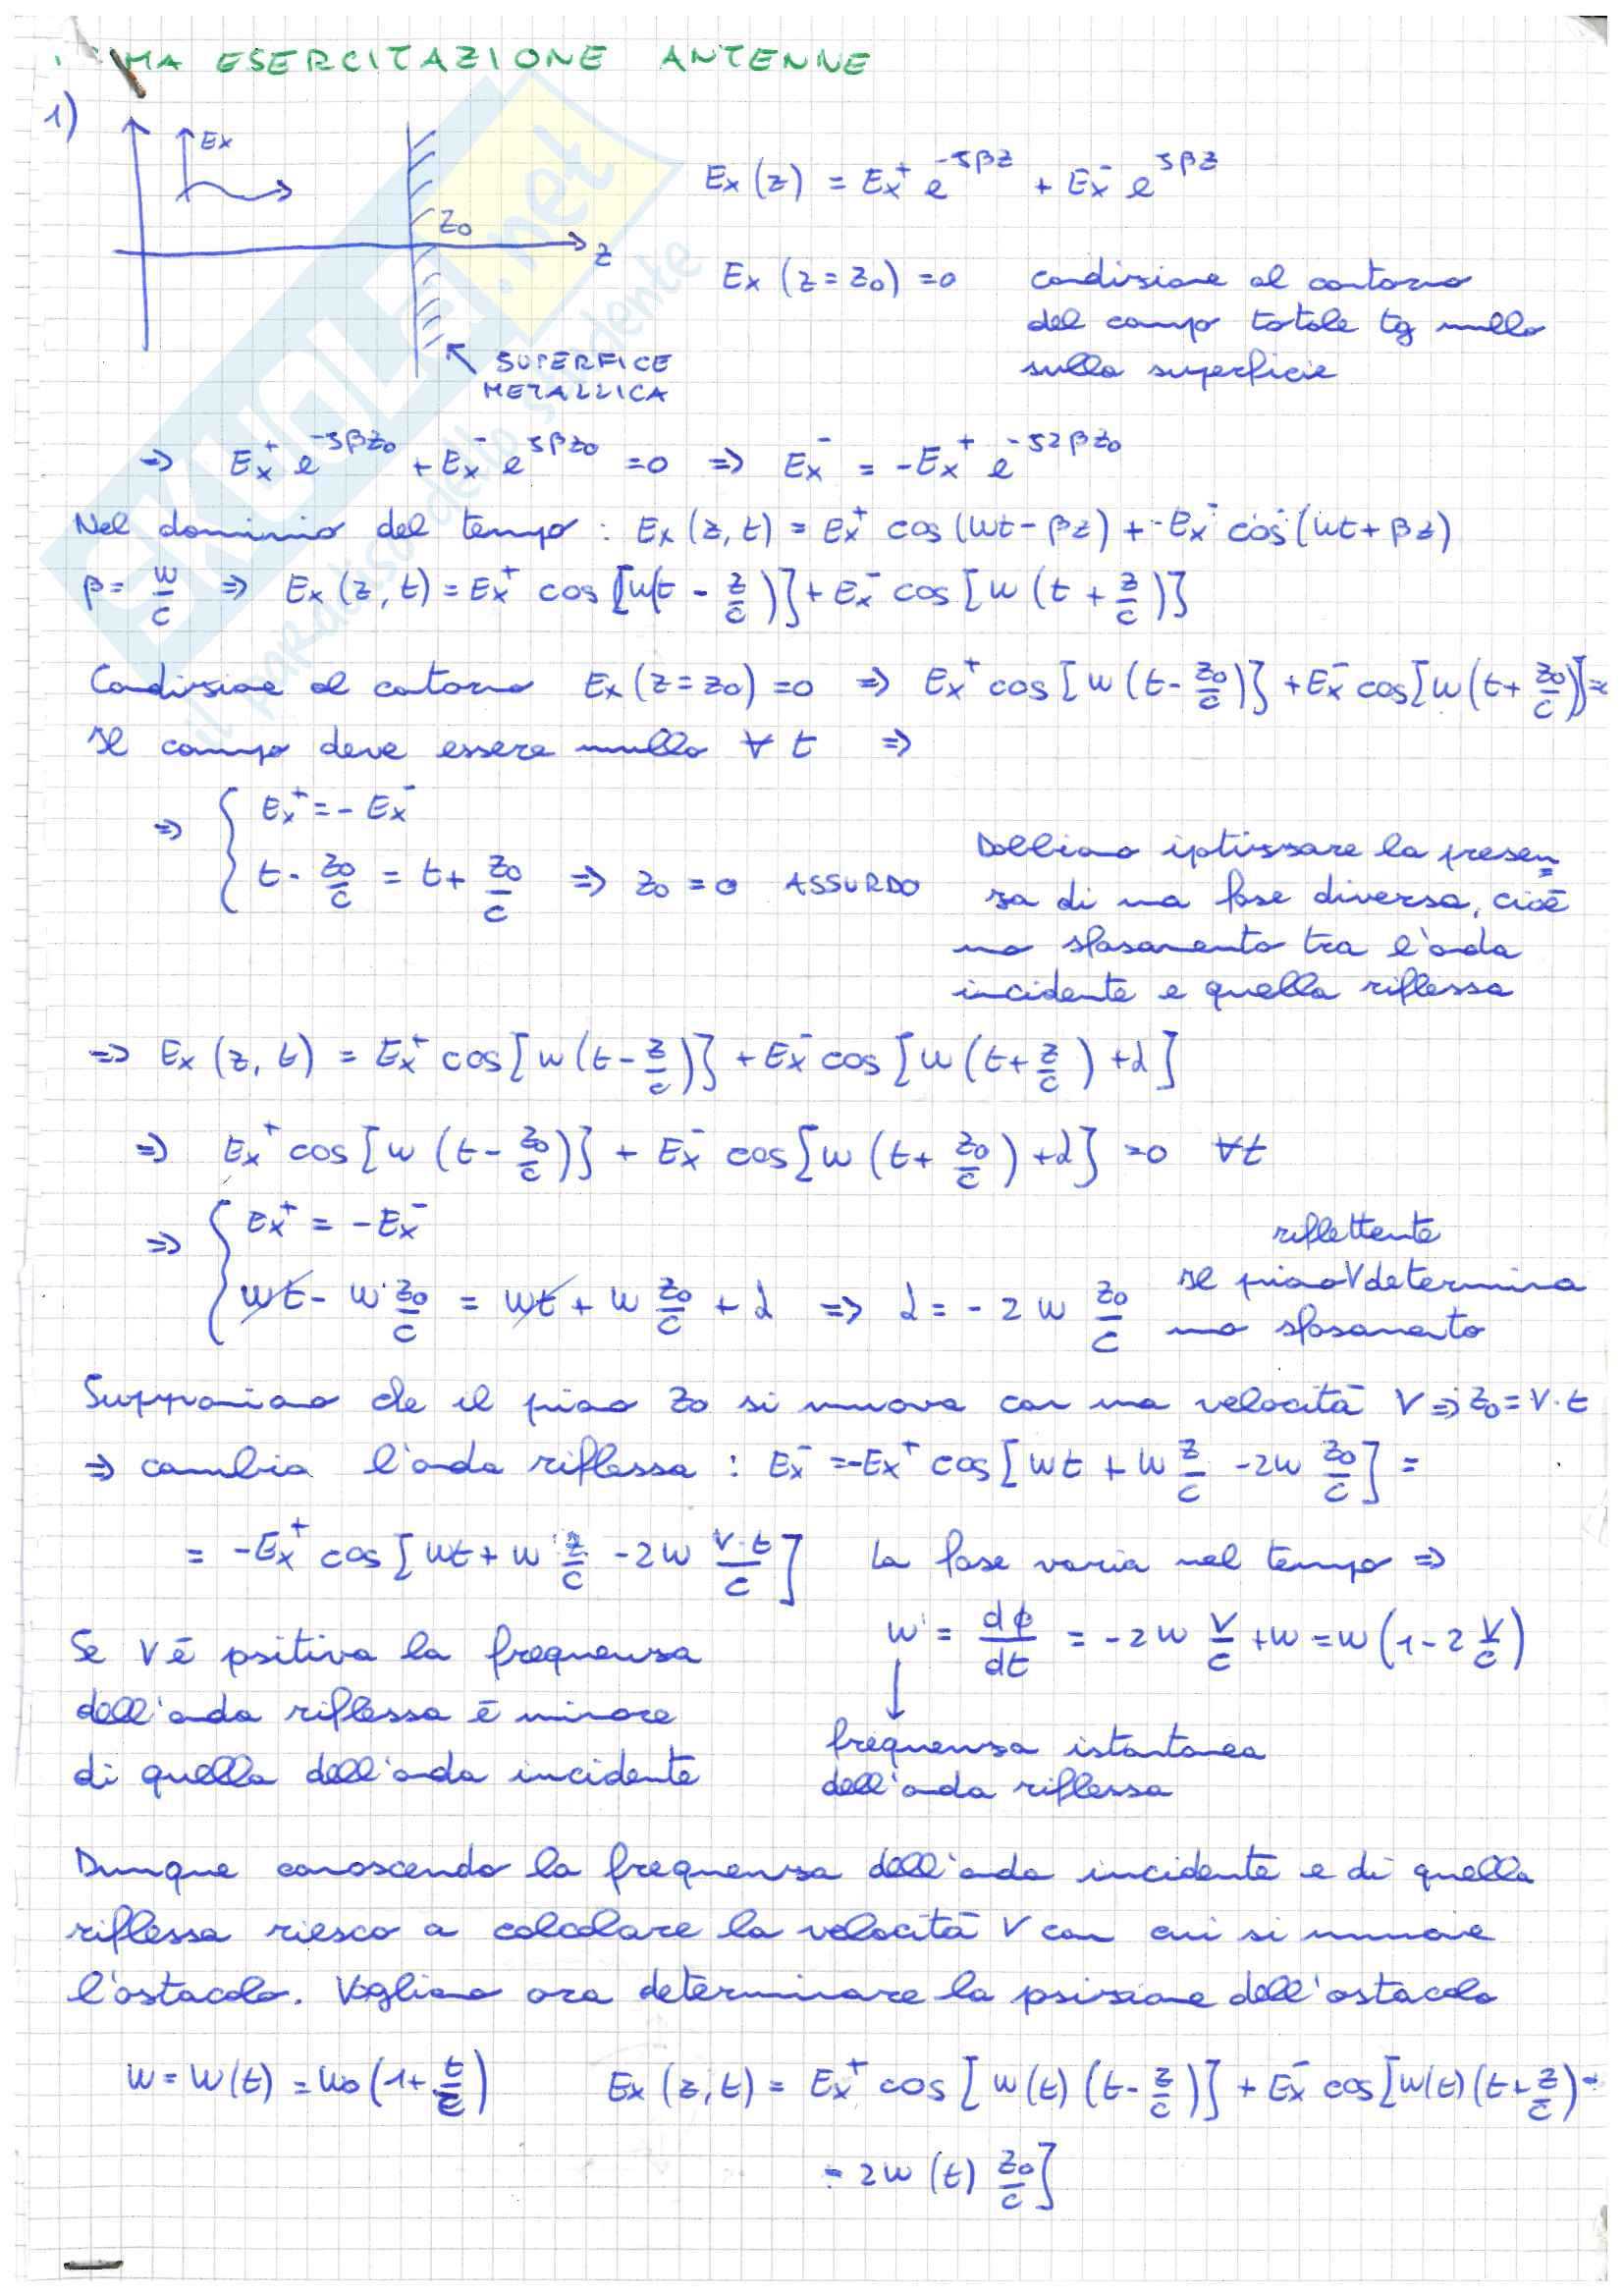 MA ESERCITAZIONE ANTENNE
1)
Ex
Z0
z
SUPERFICE
METALLICA
Ex(z) = Ex⁺ e^(-jβz) + Ex⁻ e^(jβz)
Ex(z=z0)=0 condizione al contorno
del campo totale tg nullo
sulla superficie
=> Ex⁺ e^(-jβz0) + Ex⁻ e^(jβz0) = 0 => Ex⁻ = -Ex⁺ e^(-j2βz0)
Nel dominio del tempo : Ex(z,t) = Ex⁺ cos(wt-βz) + -Ex⁻ cos(wt+βz)
β = w/c => Ex(z,t) = Ex⁺ cos[w(t - z/c)] + Ex⁻ cos[w(t + z/c)]
Condizione al contorno Ex(z=z0)=0 => Ex⁺ cos[w(t - z0/c)] + Ex⁻ cos[w(t + z0/c)]=
Il campo deve essere nullo ∀ t =>
=> { Ex⁺ = - Ex⁻
t - z0/c = t + z0/c => z0 = 0 ASSURDO
Dobbiamo iptizzare la presen=
za di una fase diversa, cioè
uno sfasamento tra l'onda
incidente e quella riflessa
=> Ex(z,t) = Ex⁺ cos[w(t - z/c)] + Ex⁻ cos[w(t + z/c) + α]
=> Ex⁺ cos[w(t - z0/c)] + Ex⁻ cos[w(t + z0/c) + α] = 0 ∀t
=> { Ex⁺ = - Ex⁻
wt - w z0/c = wt + w z0/c + α => α = - 2 w z0/c
riflettente
Il piano V determina
uno sfasamento
Supponiamo che il piano z0 si muova con una velocità V => z0 = V·t
=> cambia l'onda riflessa : Ex⁻ = -Ex⁺ cos[wt + w z/c - 2w z0/c] =
= -Ex⁺ cos[wt + w z/c - 2w V·t/c] La fase varia nel tempo =>
w' = dϕ/dt = -2w V/c + w = w(1 - 2 V/c)
Se V è psitiva la frequenza
dell'onda riflessa è minore
di quella dell'onda incidente
frequenza istantanea
dell'onda riflessa
Dunque conoscendo la frequenza dell'onda incidente e di quella
riflessa riesco a calcolare la velocità V con cui si muove
l'ostacolo. Vogliamo ora determinare la psizione dell'ostacolo
w = w(t) = w0(1 + t/τ) Ex(z,t) = Ex⁺ cos[w(t)(t - z/c)] + Ex⁻ cos[w(t)(t + z/c) -
- 2w(t) z0/c]